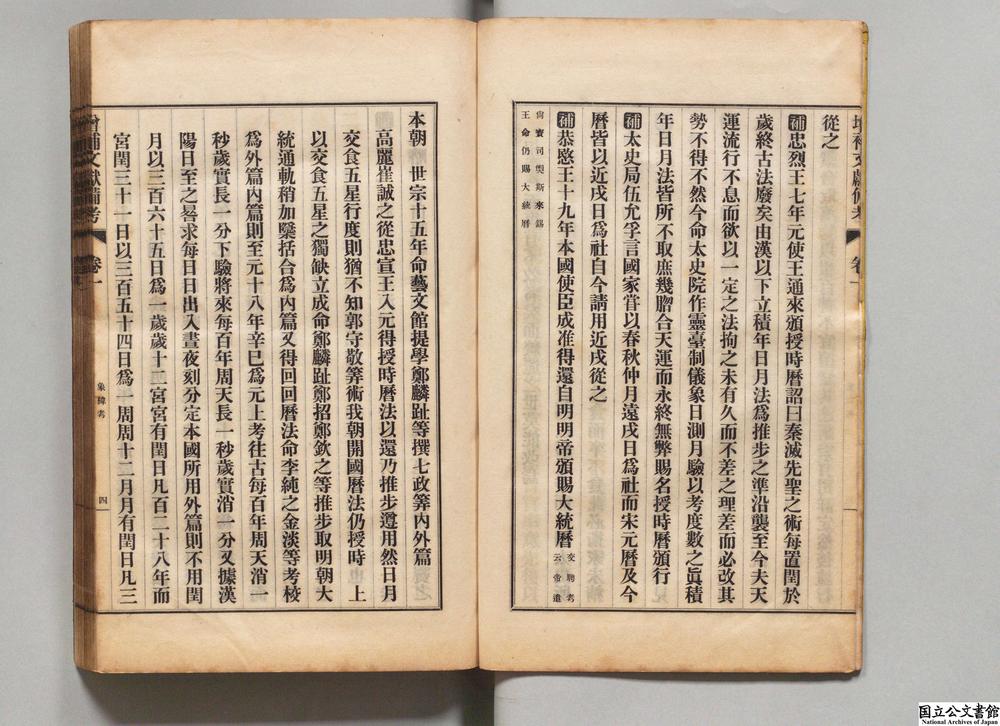 增補文獻備考 卷一
從之
補忠烈王七年元使王通來頒授時曆詔曰秦滅先聖之術每置閏於
歲終古法廢矣由漢以下立積年日月法爲推步之準沿襲至今夫天
運流行不息而欲以一定之法拘之未有久而不差之理差而必改其
勢不得不然今命太史院作靈臺制儀象日測月驗以考度數之眞積
年日月法皆所不取庶幾脗合天運而永終無弊賜名授時曆頒行
補太史局伍允孚言國家甞以春秋仲月遠戌日爲社而宋元曆及今
曆皆以近戌日爲社自今請用近戌從之
補恭愍王十九年本國使臣成准得還自明明帝頒賜大統曆 交聘考
云帝遣
尙寶司偰斯來錫
王命仍賜大統曆
本朝 世宗十五年命藝文館提學鄭麟趾等撰七政筭內外篇
高麗崔誠之從忠宣王入元得授時曆法以還乃推步遵用然日月
交食五星行度則猶不知郭守敬筭術我朝開國曆法仍授時 上
以交食五星之獨缺立成命鄭麟趾鄭招鄭欽之等推步取明朝大
統通軌稍加檃括合爲內篇又得回回曆法命李純之金淡等考校
爲外篇內篇則至元十八年辛巳爲元上考往古每百年周天消一
秒歲實長一分下驗將來每百年周天長一秒歲實消一分又據漢
陽日至之晷求每日日出入晝夜刻分定本國所用外篇則不用閏
月以三百六十五日爲一歲歲十二宮宮有閏日凡百二十八年而
宮閏三十一日以三百五十四日爲一周周十二月月有閏日凡三
增補文獻備考 卷一
象緯考
四
国立公文書館
National Archives of Japan